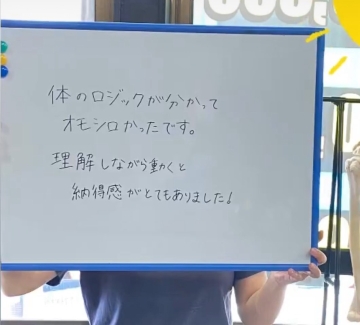 体のロジックが分かって
オモシロかったです。
理解しながら動くと
納得感がとてもありました!